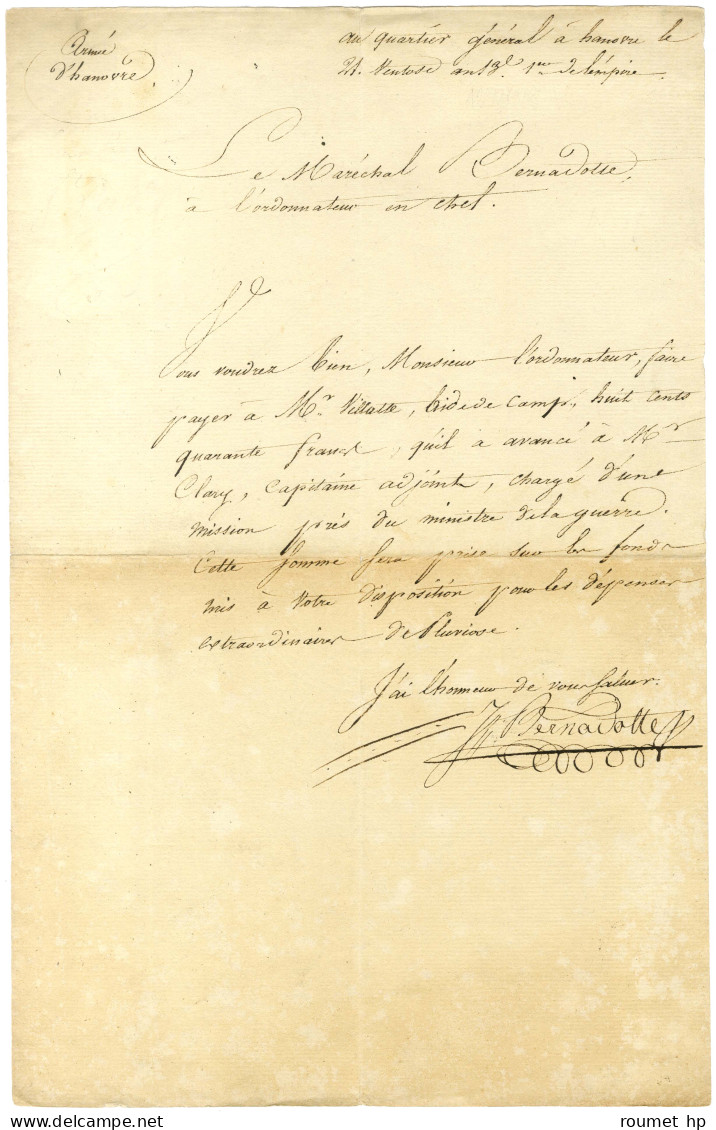 Armée
d'hanovre
au quartier général à hanovre le
21. Ventose an 13. 1er de l'empire.
Le Maréchal Bernadotte,
à l'ordonnateur en chef.
Vous voudrez bien, Monsieur l'ordonnateur, faire
payer à Mr Villatte, Aide de Camp, huit cents
quarante francs, qu'il a avancé à Mr
Clary, Capitaine adjoint, chargé d'une
mission près du ministre de la guerre.
Cette somme sera prise sur les fonds
mis à votre disposition pour les dépenses
extraordinaires de Pluviose.
J'ai l'honneur de vous saluer.
J. Bernadotte
© roumet hp
www.delcampe.net